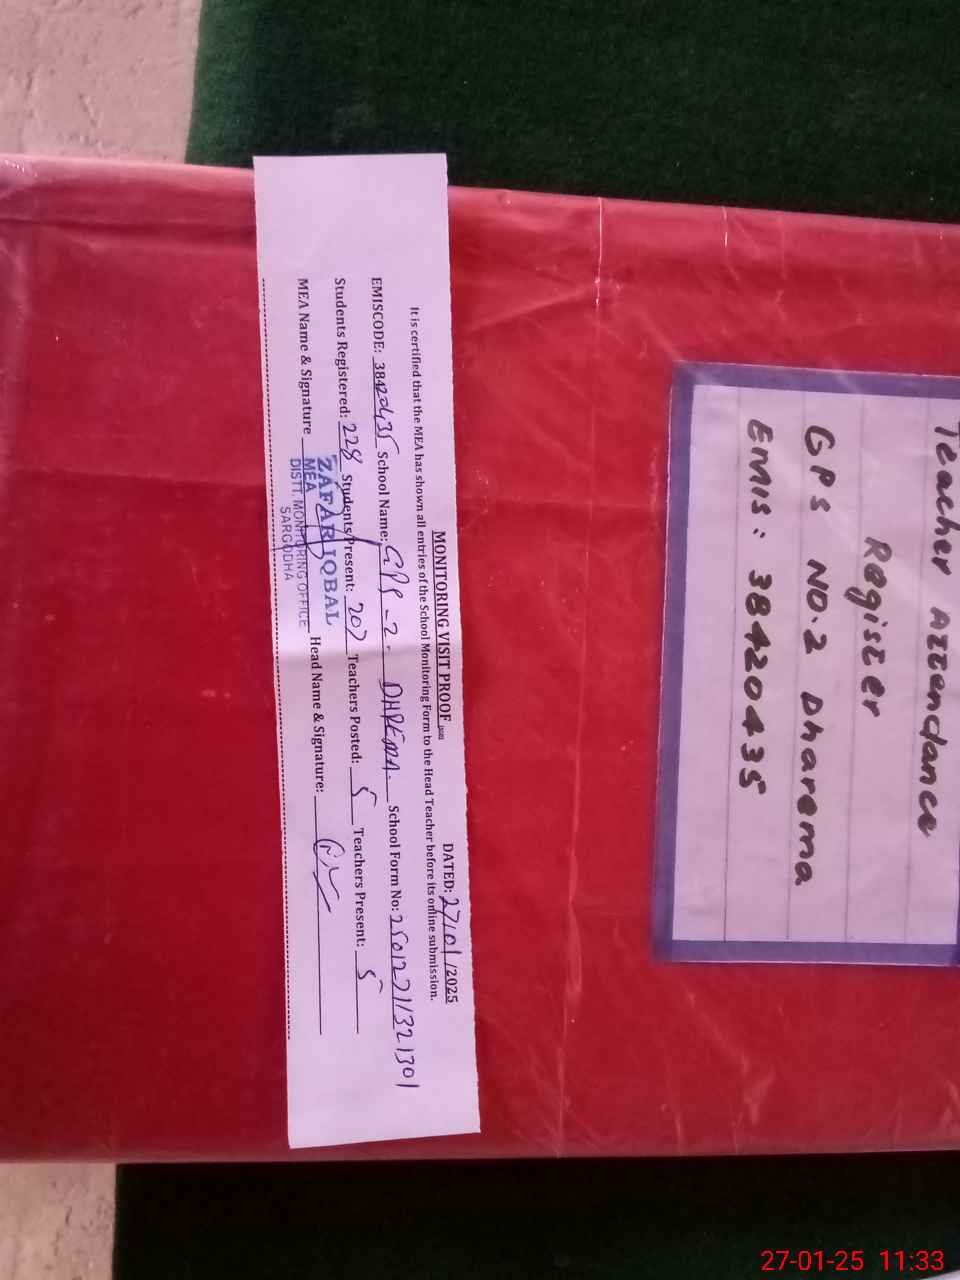 Teacher Attendance
Register
GPS NO.2 Dharema
EMIS: 38420435
MONITORING VISIT PROOF
DATED: 27/01/2025
It is certified that the MEA has shown all entries of the School Monitoring Form to the Head Teacher before its online submission.
EMISCODE: 38420435 School Name: GPS-2- DHREMA. School Form No: 25012711321301
Students Registered: 228 Students Present: 207 Teachers Posted: 5 Teachers Present: 5
MEA Name & Signature Head Name & Signature:
ZAFAR IQBAL
MEA
DISTT. MONITORING OFFICE
SARGODHA
27-01-25 11:33